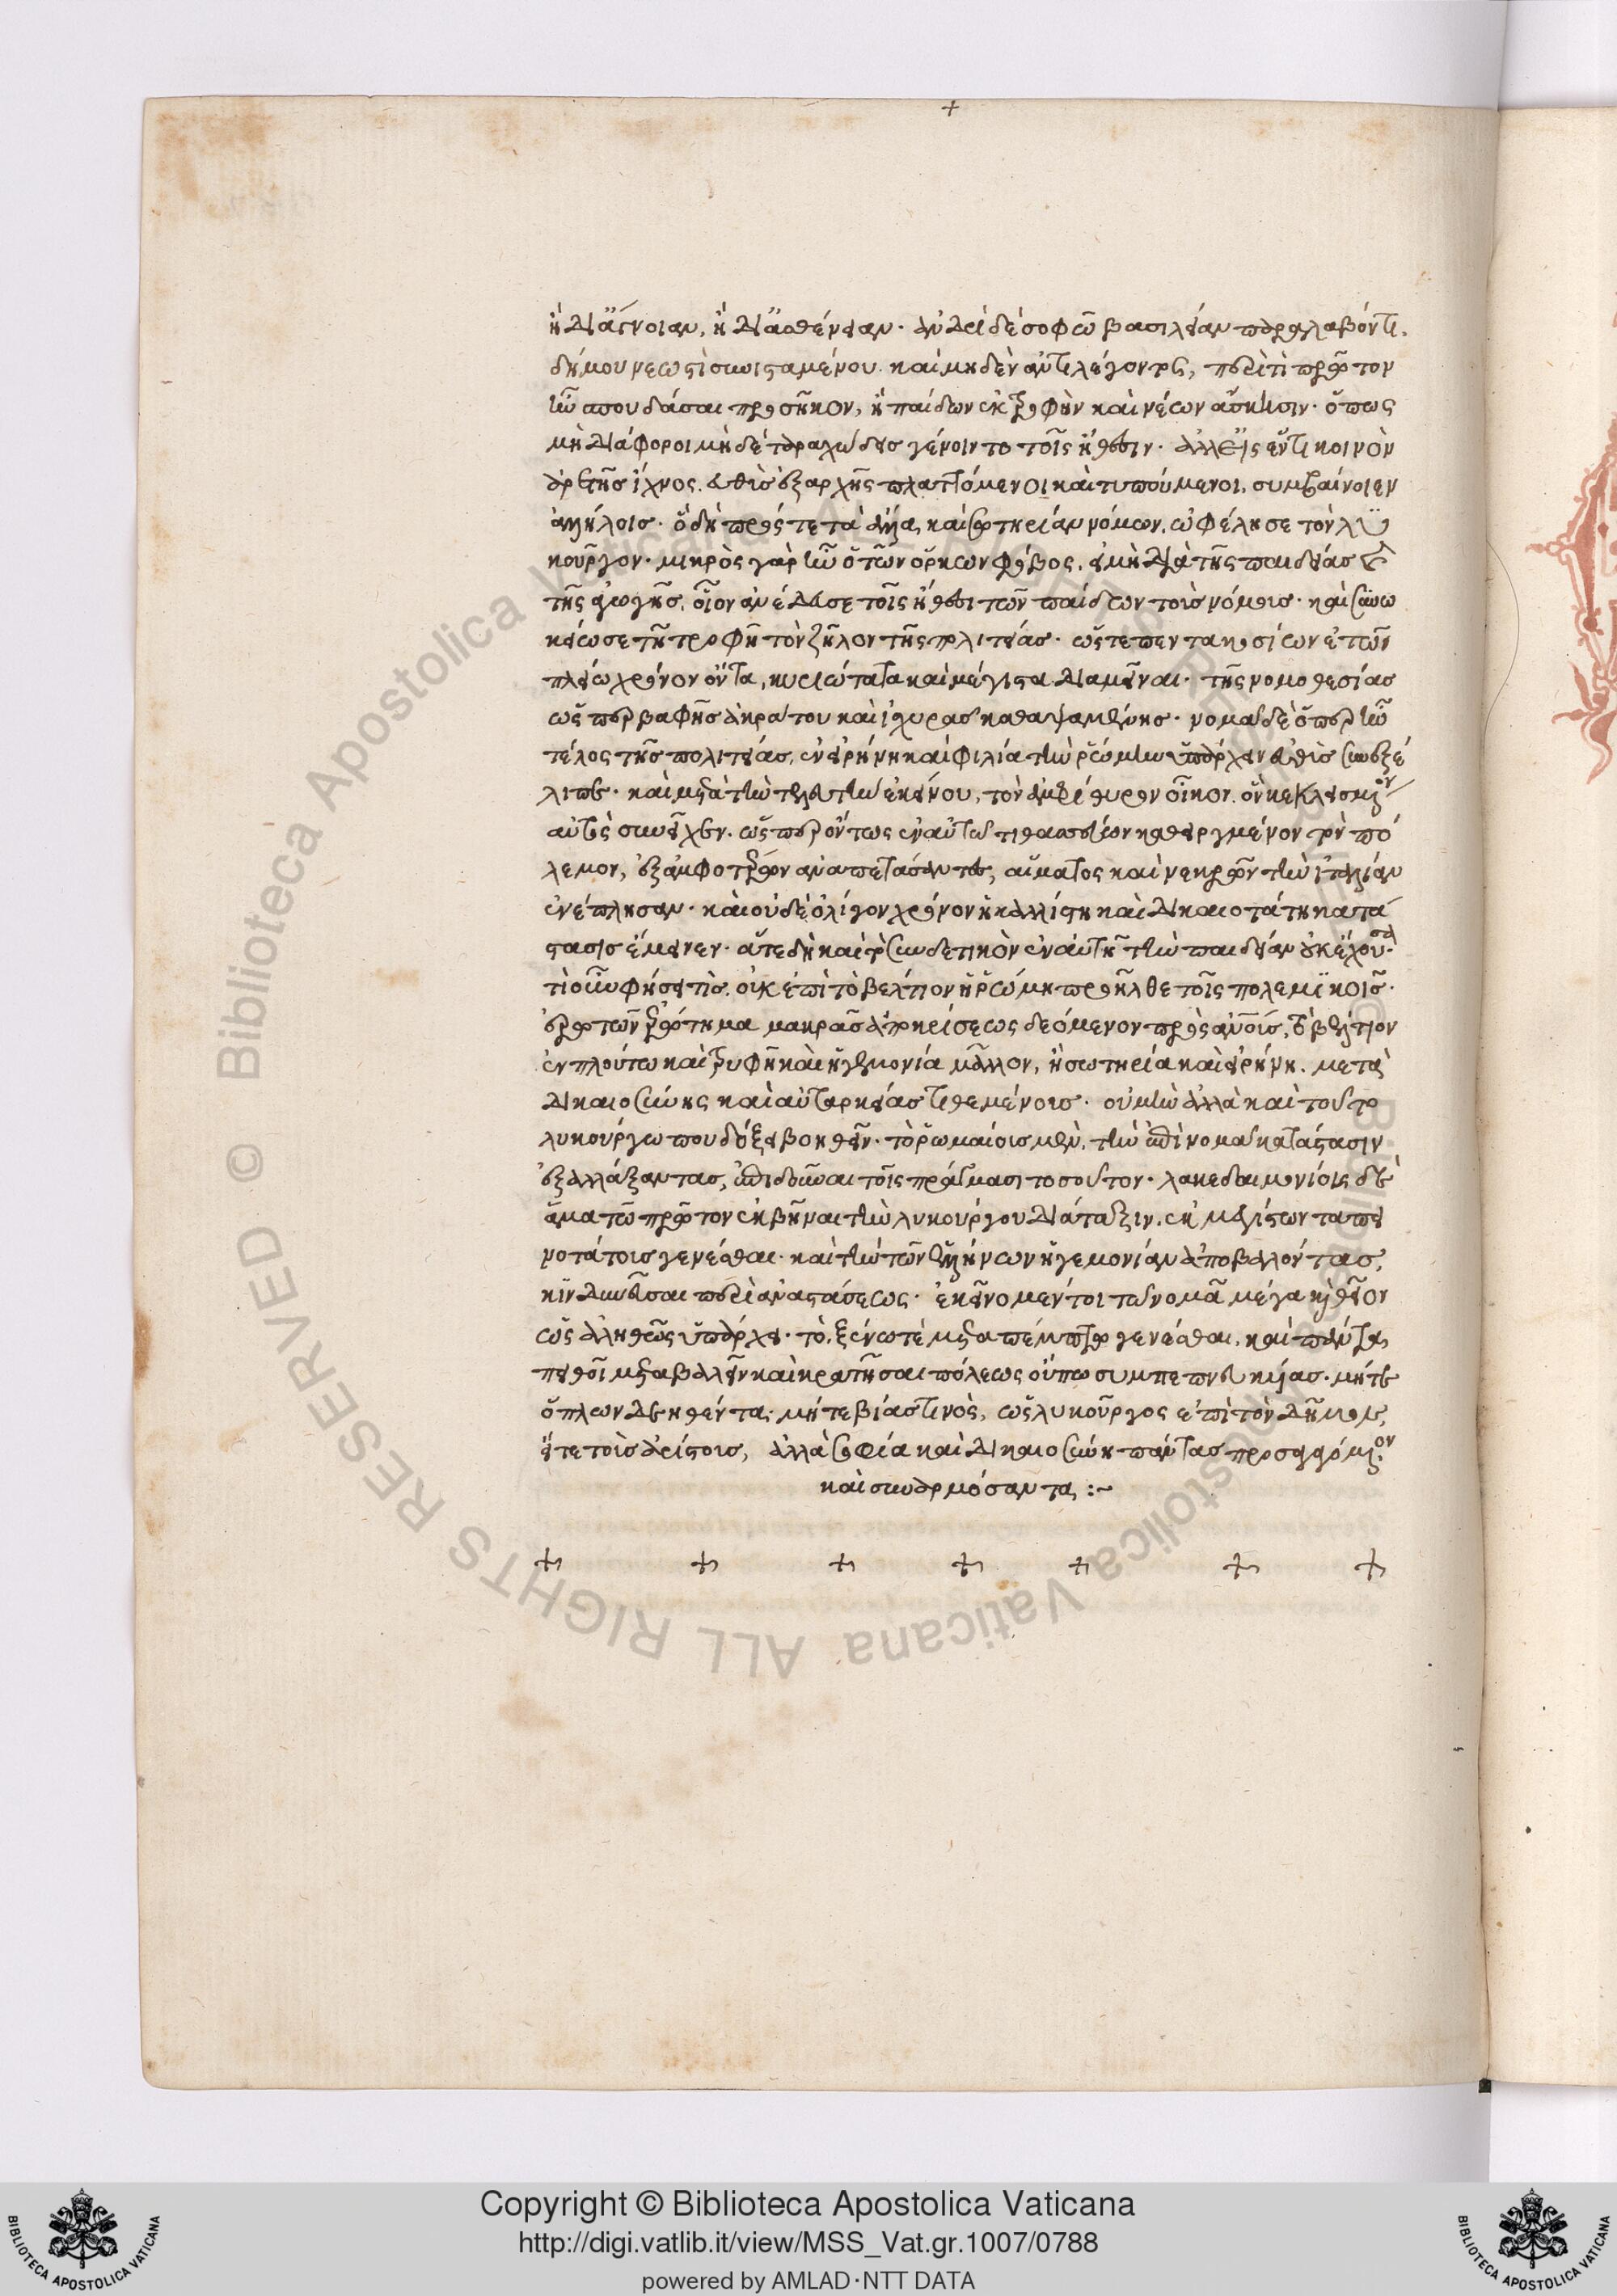 +
ἢ δι' ἄγνοιαν, ἢ δι' ἀσθένειαν. ἀνδρὶ δὲ σοφῶ βασιλείαν παραλαβόντι
δήμου νεωστὶ συνισταμένου καὶ μηδὲν ἀντιλέγοντος, περὶ τί πρῶτον
ἦν σπουδάσαι προσῆκον, ἢ παίδων ἐκτροφὴν καὶ νέων ἄσκησιν. ὅπως
μὴ διάφοροι μὴ δὲ ταραχώδεις γένοιντο τοῖς ἤθεσιν. ἀλλ' εἰς ἕν τι κοινὸν
ἀρετῆς ἴχνος εὐθὺς ἐξ ἀρχῆς πλαττόμενοι καὶ τυπούμενοι, συμβαίνοιεν
ἀλλήλοις. ὃ δὴ πρός τε τὰ ἄλλα καὶ σωτηρίαν νόμων, ὠφέλησε τὸν λυ
κοῦργον. μικρὸς γὰρ ἦν ὁ τῶν ὅρκων φόβος, εἰ μὴ διὰ τῆς παιδείας καὶ
τῆς ἀγωγῆς, οἷον ἀνέδευσε τοῖς ἤθεσι τῶν παίδων τοὺς νόμους. καὶ συνω
κείωσε τῆ τροφῆ τὸν ζῆλον τῆς πολιτείας. ὥστε πεντακοσίων ἐτῶν
πλείω χρόνον ὄντα, κυριώτατα καὶ μέγιστα διαμεῖναι. τῆς νομοθεσίας
ὥσπερ βαφῆς ἀκράτου καὶ ἰσχυρᾶς καθαψαμένης. νομᾶ δὲ ὅπερ ἦν
τέλος τῆς πολιτείας, ἐν εἰρήνη καὶ φιλία τὴν ῥώμην ὑπάρχειν εὐθὺς συνεξέ
λιπε. καὶ μετὰ τὴν τελευτὴν ἐκείνου, τὸν ἀμφίθυρον οἶκον ὃν κεκλεισμένον
αὐτὸς συνεῖχεν. ὥσπερ ὄντως ἐν αὐτῶ τιθασσεύων καθειργμένον τὸν πό
λεμον, ἐξ ἀμφοτέρων ἀναπετάσαντες, αἵματος καὶ νεκρῶν τὴν ἰταλίαν
ἐνέπλησαν. καὶ οὐδὲ ὀλίγον χρόνον ἡ καλλίστη καὶ δικαιοτάτη κατά
στασις ἔμεινεν. ἅτε δὴ καὶ τὸ συνδετικὸν ἐν αὐτῆ τὴν παιδείαν οὐκ ἔχουσα.
τί οὖν φήσει τις, οὐκ ἐπὶ τὸ βέλτιον ἡ ῥώμη προῆλθε τοῖς πολεμικοῖς.
ἐρωτῶν ἐρώτημα μακρᾶς ἀποκρίσεως δεόμενον πρὸς ἀνθρώπους, τὸ βέλτιον
ἐν πλούτω καὶ τρυφῆ καὶ ἡγεμονία μᾶλλον, ἢ σωτηρία καὶ εἰρήνη. μετὰ
δικαιοσύνης καὶ αὐταρκείας τιθεμένοις. οὐ μὴν ἀλλὰ καὶ τοῦτο
λυκούργω που δόξει βοηθεῖν. τὸ ῥωμαίοις μὲν, τὴν ἐπὶ νομᾶ κατάστασιν
ἐξαλλάξαντας, ἐπιδοῦναι τοῖς πράγμασι τοσοῦτον. λακεδαιμονίοις δὲ
ἅμα τῶ πρῶτον ἐκβῆναι τὴν λυκούργου διάταξιν, ἐκ μεγίστων ταπει
νοτάτοις γενέσθαι. καὶ τὴν τῶν ἑλλήνων ἡγεμονίαν ἀποβαλόντας,
κινδυνεῦσαι περὶ ἀναστάσεως. ἐκεῖνο μέν τοι τῶ νομᾶ μέγα καὶ θεῖον
ὡς ἀληθῶς ὑπάρχει. τὸ, ξένω τὲ μεταπέμπτω γενέσθαι, καὶ πάντα
πειθοῖ μεταβαλεῖν καὶ κρατῆσαι πόλεως οὔπω συμπεπνευκυίας. μήτε
ὅπλων δεηθέντα, μήτε βίας τινὸς, ὡς λυκοῦργος ἐπὶ τὸν δῆμον
ἦγε τοὺς ἀρίστους, ἀλλὰ σοφία καὶ δικαιοσύνη πάντας προσαγόμενον
καὶ συναρμόσαντα :~
+ + + + + + +
© Biblioteca Apostolica Vaticana ALL RIGHTS RESERVED
Copyright © Biblioteca Apostolica Vaticana
http://digi.vatlib.it/view/MSS_Vat.gr.1007/0788
powered by AMLAD·NTT DATA
BIBLIOTECA APOSTOLICA VATICANA
BIBLIOTECA APOSTOLICA VATICANA